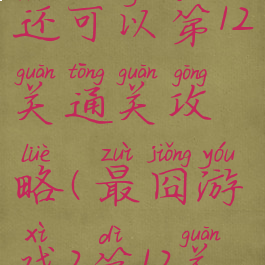 还可以第12
guān tōng guān gōng
关通关攻
lüè zuì jiǒng yóu
略(最囧游
xì dì guān
戏2第12关